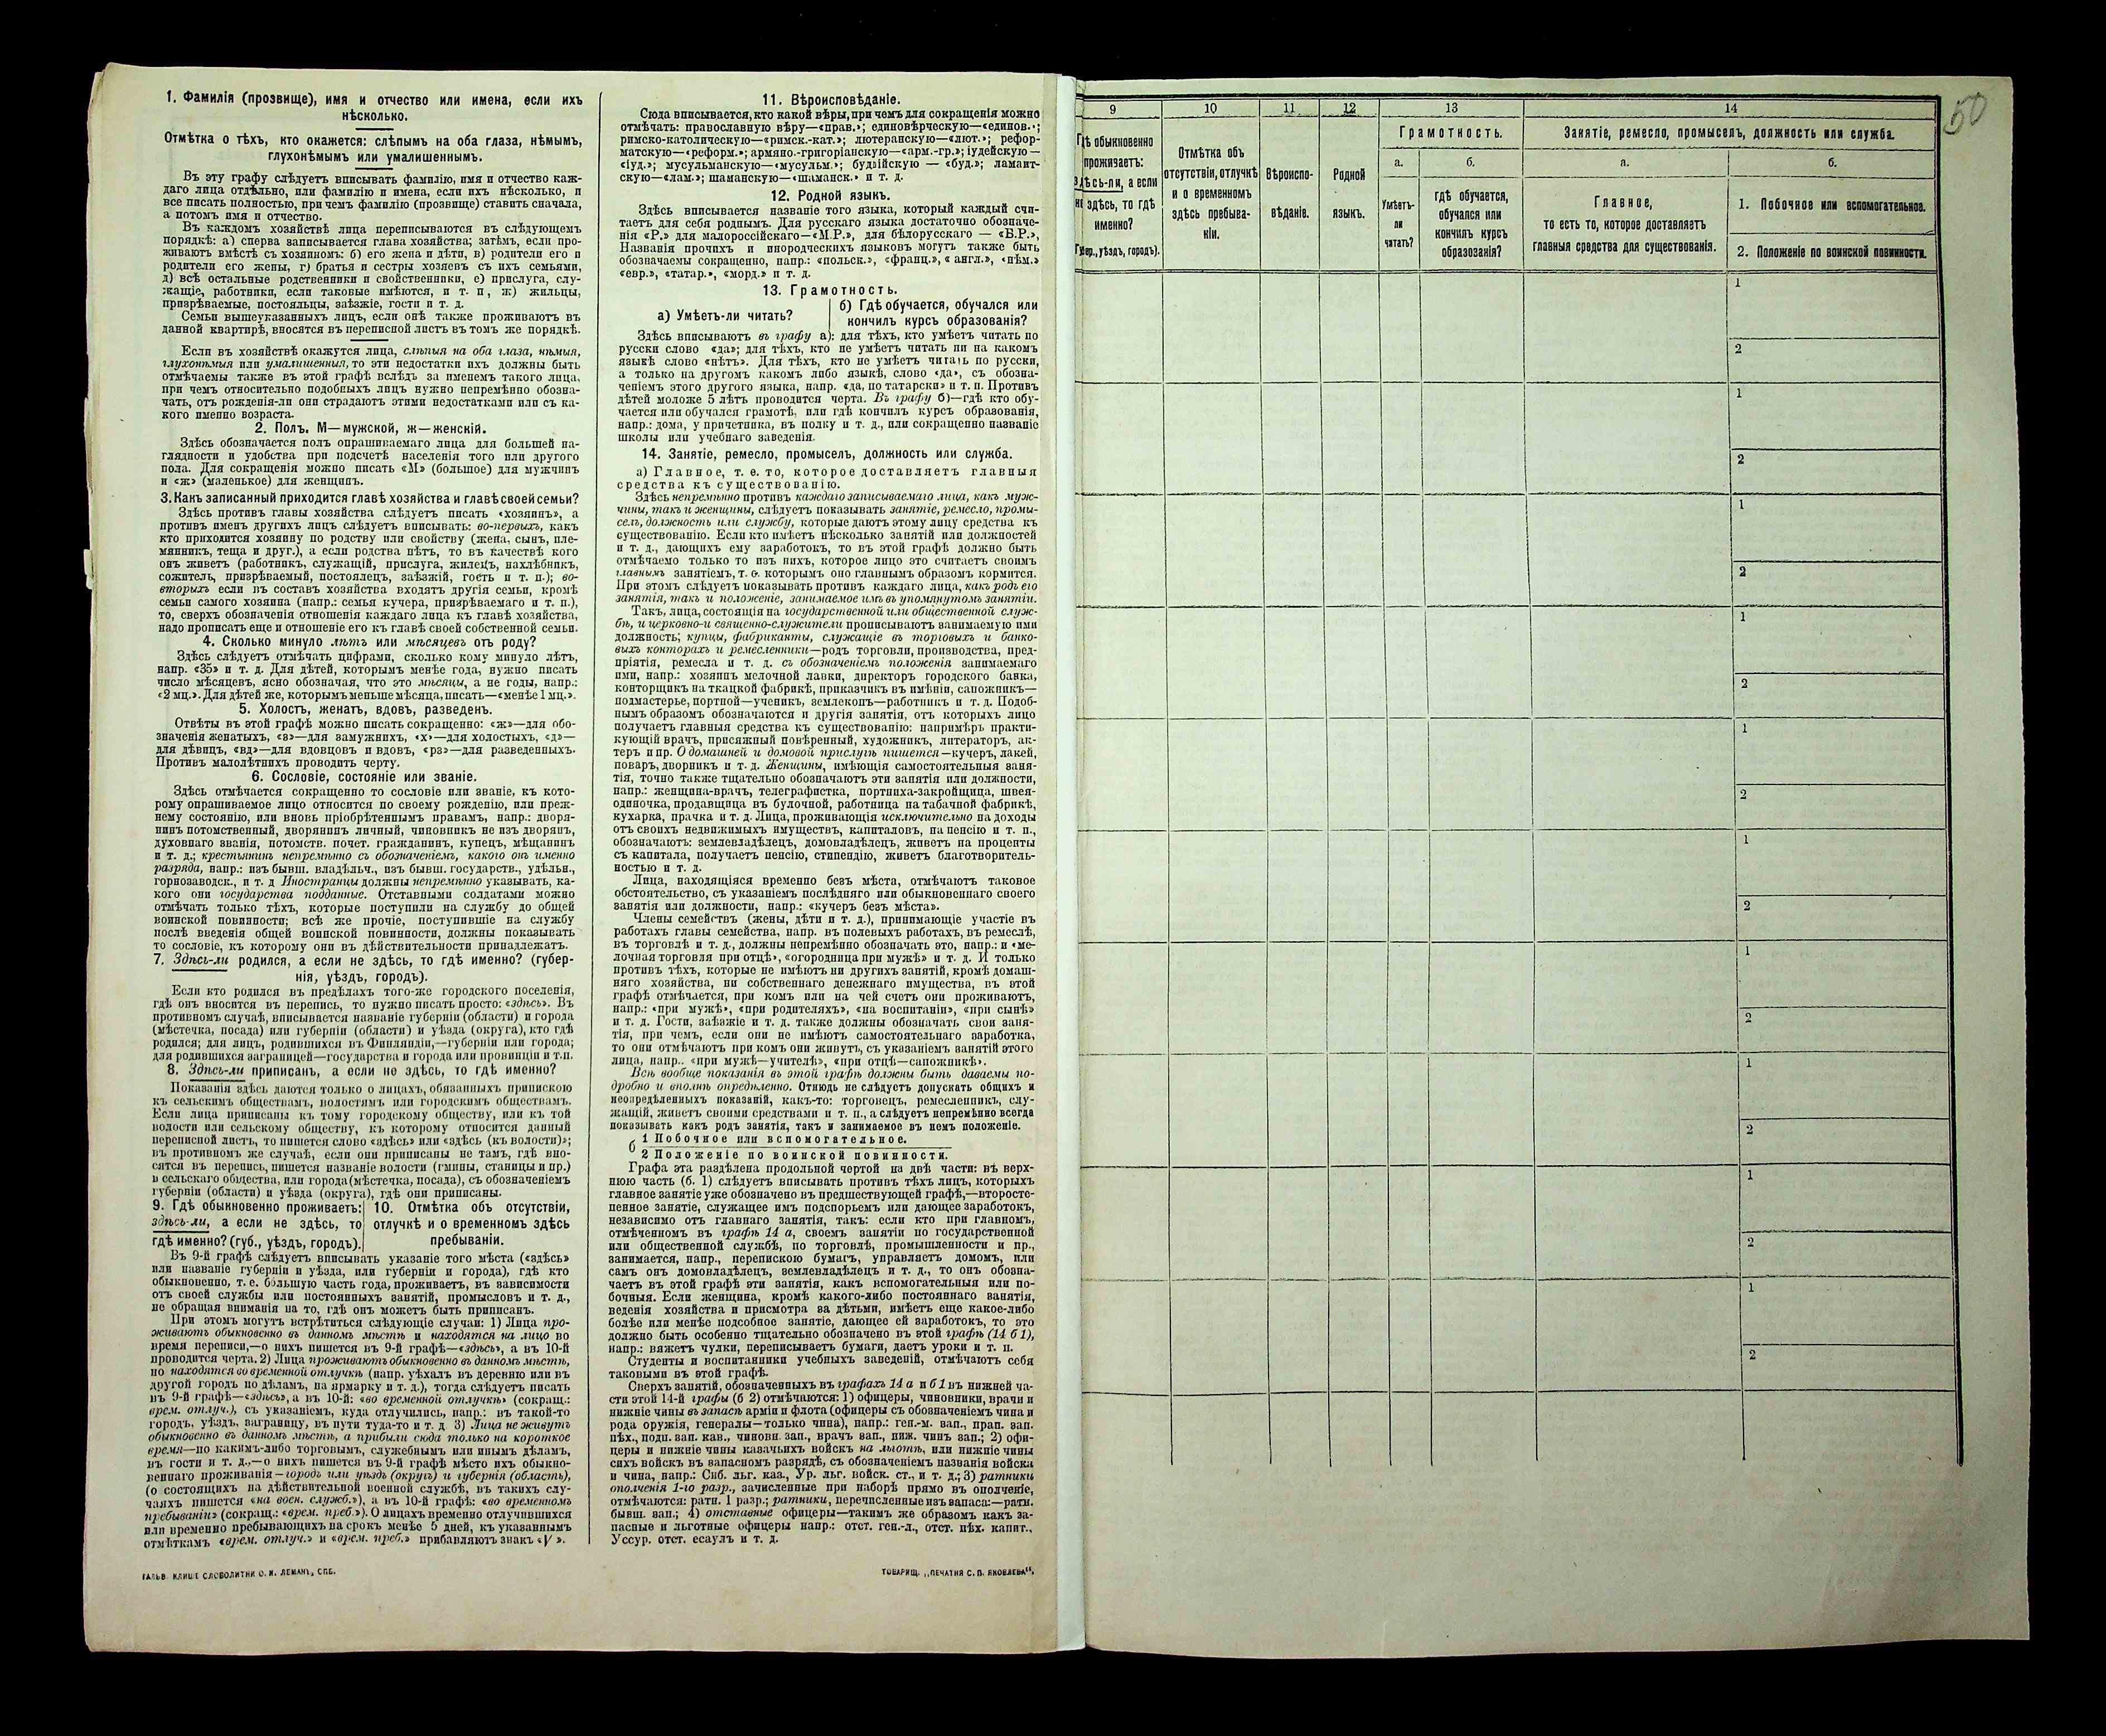 1. Фамилія (прозвище), имя и отчество или имена, если ихъ
нѣсколько.
Отмѣтка о тѣхъ, кто окажется: слѣпымъ на оба глаза, нѣмымъ,
глухонѣмымъ или умалишеннымъ.
Въ эту графу слѣдуетъ вписывать фамилію, имя и отчество каж-
даго лица отдѣльно, или фамилію и имена, если ихъ нѣсколько, и
все писать полностью, при чемъ фамилію (прозвище) ставить сначала,
а потомъ имя и отчество.
Въ каждомъ хозяйствѣ лица переписываются въ слѣдующемъ
порядкѣ: а) сперва записывается глава хозяйства; затѣмъ, если про-
живаютъ вмѣстѣ съ хозяиномъ: б) его жена и дѣти, в) родители его и
родители его жены, г) братья и сестры хозяевъ съ ихъ семьями,
д) всѣ остальные родственники и свойственники, е) прислуга, слу-
жащіе, работники, если таковые имѣются, и т. п, ж) жильцы,
призрѣваемые, постояльцы, заѣзжіе, гости и т. д.
Семьи вышеуказанныхъ лицъ, если онѣ также проживаютъ въ
данной квартирѣ, вносятся въ переписной листъ въ томъ же порядкѣ.
Если въ хозяйствѣ окажутся лица, слѣпыя на оба глаза, нѣмыя,
глухонѣмыя или умалишенныя, то эти недостатки ихъ должны быть
отмѣчаемы также въ этой графѣ вслѣдъ за именемъ такого лица,
при чемъ относительно подобныхъ лицъ нужно непремѣнно обозна-
чать, отъ рожденія-ли они страдаютъ этими недостатками или съ ка-
кого именно возраста.
2. Полъ. М—мужской, ж—женскій.
Здѣсь обозначается полъ опрашиваемаго лица для большей на-
глядности и удобства при подсчетѣ населенія того или другого
пола. Для сокращенія можно писать «М» (большое) для мужчинъ
и «ж» (маленькое) для женщинъ.
3. Какъ записанный приходится главѣ хозяйства и главѣ своей семьи?
Здѣсь противъ главы хозяйства слѣдуетъ писать «хозяинъ», а
противъ именъ другихъ лицъ слѣдуетъ вписывать: во-первыхъ, какъ
кто приходится хозяину по родству или свойству (жена, сынъ, пле-
мянникъ, теща и друг.), а если родства нѣтъ, то въ качествѣ кого
онъ живетъ (работникъ, служащій, прислуга, жилецъ, нахлѣбникъ,
сожитель, призрѣваемый, постоялецъ, заѣзжій, гость и т. п.); во-
вторыхъ если въ составъ хозяйства входятъ другія семьи, кромѣ
семьи самого хозяина (напр.: семья кучера, призрѣваемаго и т. п.),
то, сверхъ обозначенія отношенія каждаго лица къ главѣ хозяйства,
надо прописать еще и отношеніе его къ главѣ своей собственной семьи.
4. Сколько минуло лѣтъ или мѣсяцевъ отъ роду?
Здѣсь слѣдуетъ отмѣчать цифрами, сколько кому минуло лѣтъ,
напр. «35» и т. д. Для дѣтей, которымъ менѣе года, нужно писать
число мѣсяцевъ, ясно обозначая, что это мѣсяцы, а не годы, напр.:
«2 мц.». Для дѣтей же, которымъ меньше мѣсяца, писать—«менѣе 1 мц.».
5. Холостъ, женатъ, вдовъ, разведенъ.
Отвѣты въ этой графѣ можно писать сокращенно: «ж»—для обо-
значенія женатыхъ, «з»—для замужнихъ, «х»—для холостыхъ, «д»—
для дѣвицъ, «вд»—для вдовцовъ и вдовъ, «рз»—для разведенныхъ.
Противъ малолѣтнихъ проводить черту.
6. Сословіе, состояніе или званіе.
Здѣсь отмѣчается сокращенно то сословіе или званіе, къ кото-
рому опрашиваемое лицо относится по своему рожденію, или преж-
нему состоянію, или вновь пріобрѣтеннымъ правамъ, напр.: дворя-
нинъ потомственный, дворянинъ личный, чиновникъ не изъ дворянъ,
духовнаго званія, потомств. почет. гражданинъ, купецъ, мѣщанинъ
и т. д.; крестьянинъ непремѣнно съ обозначеніемъ, какого онъ именно
разряда, напр.: изъ бывш. владѣльч., изъ бывш. государств., удѣльн.,
горнозаводск., и т. д Иностранцы должны непремѣнно указывать, ка-
кого они государства подданные. Отставными солдатами можно
отмѣчать только тѣхъ, которые поступили на службу до общей
воинской повинности; всѣ же прочіе, поступившіе на службу
послѣ введенія общей воинской повинности, должны показывать
то сословіе, къ которому они въ дѣйствительности принадлежатъ.
7. Здѣсь-ли родился, а если не здѣсь, то гдѣ именно? (губер-
нія, уѣздъ, городъ).
Если кто родился въ предѣлахъ того-же городского поселенія,
гдѣ онъ вносится въ перепись, то нужно писать просто: «здѣсь». Въ
противномъ случаѣ, вписывается названіе губерніи (области) и города
(мѣстечка, посада) или губерніи (области) и уѣзда (округа), кто гдѣ
родился; для лицъ, родившихся въ Финляндіи,—губерніи или города;
для родившихся заграницей—государства и города или провинціи и т.п.
8. Здѣсь-ли приписанъ, а если не здѣсь, то гдѣ именно?
Показанія здѣсь даются только о лицахъ, обязанныхъ припискою
къ сельскимъ обществамъ, волостямъ или городскимъ обществамъ.
Если лица приписаны къ тому городскому обществу, или къ той
волости или сельскому обществу, къ которому относится данный
переписной листъ, то пишется слово «здѣсь» или «здѣсь (къ волости)»;
въ противномъ же случаѣ, если они приписаны не тамъ, гдѣ вно-
сятся въ перепись, пишется названіе волости (гмины, станицы и пр.)
и сельскаго общества, или города (мѣстечка, посада), съ обозначеніемъ
губерніи (области) и уѣзда (округа), гдѣ они приписаны.
9. Гдѣ обыкновенно проживаетъ:
здѣсь-ли, а если не здѣсь, то
гдѣ именно? (губ., уѣздъ, городъ).
10. Отмѣтка объ отсутствіи,
отлучкѣ и о временномъ здѣсь
пребываніи.
Въ 9-й графѣ слѣдуетъ вписывать указаніе того мѣста («здѣсь»
или названіе губерніи и уѣзда, или губерніи и города), гдѣ кто
обыкновенно, т. е. бо́льшую часть года, проживаетъ, въ зависимости
отъ своей службы или постоянныхъ занятій, промысловъ и т. д.,
не обращая вниманія на то, гдѣ онъ можетъ быть приписанъ.
При этомъ могутъ встрѣтиться слѣдующіе случаи: 1) Лица про-
живаютъ обыкновенно въ данномъ мѣстѣ и находятся на лицо во
время переписи,—о нихъ пишется въ 9-й графѣ—«здѣсь», а въ 10-й
проводится черта. 2) Лица проживаютъ обыкновенно въ данномъ мѣстѣ,
но находятся во временной отлучкѣ (напр. уѣхалъ въ деревню или въ
другой городъ по дѣламъ, на ярмарку и т. д.), тогда слѣдуетъ писать
въ 9-й графѣ—«здѣсь», а въ 10-й: «во временной отлучкѣ» (сокращ.:
врем. отлуч.), съ указаніемъ, куда отлучились, напр.: въ такой-то
городъ, уѣздъ, заграницу, въ пути туда-то и т. д 3) Лица не живутъ
обыкновенно въ данномъ мѣстѣ, а прибыли сюда только на короткое
время—по какимъ-либо торговымъ, служебнымъ или инымъ дѣламъ,
въ гости и т. д.,—о нихъ пишется въ 9-й графѣ мѣсто ихъ обыкно-
веннаго проживанія—городъ или уѣздъ (округъ) и губернія (область),
(о состоящихъ на дѣйствительной военной службѣ, въ такихъ слу-
чаяхъ пишется «на воен. служб.»), а въ 10-й графѣ: «во временномъ
пребываніи» (сокращ.: «врем. преб.»). О лицахъ временно отлучившихся
или временно пребывающихъ на срокъ менѣе 5 дней, къ указаннымъ
отмѣткамъ «врем. отлуч.» и «врем. преб.» прибавляютъ знакъ «V».
ГАЛЬВ. КЛИШЕ СЛОВОЛИТНИ О. И. ЛЕМАНЪ, СПБ.
11. Вѣроисповѣданіе.
Сюда вписывается, кто какой вѣры, при чемъ для сокращенія можно
отмѣчать: православную вѣру—«прав.»; единовѣрческую—«единов.»;
римско-католическую—«римск.-кат.»; лютеранскую—«лют.»; рефор-
матскую—«реформ.»; армяно-григоріанскую—«арм.-гр.»; іудейскую—
«іуд.»; мусульманскую—«мусульм.»; буддійскую — «буд.»; ламаит-
скую—«лам.»; шаманскую—«шаманск.» и т. д.
12. Родной языкъ.
Здѣсь вписывается названіе того языка, который каждый счи-
таетъ для себя роднымъ. Для русскаго языка достаточно обозначе-
нія «Р.» для малороссійскаго—«М.Р.», для бѣлорусскаго — «Б.Р.».
Названія прочихъ и инородческихъ языковъ могутъ также быть
обозначаемы сокращенно, напр.: «польск.», «франц.», « англ.», «нѣм.»
«евр.», «татар.», «морд.» и т. д.
13. Грамотность.
а) Умѣетъ-ли читать?
б) Гдѣ обучается, обучался или
кончилъ курсъ образованія?
Здѣсь вписываютъ въ графу а): для тѣхъ, кто умѣетъ читать по
русски слово «да»; для тѣхъ, кто не умѣетъ читать ни на какомъ
языкѣ слово «нѣтъ». Для тѣхъ, кто не умѣетъ читать по русски,
а только на другомъ какомъ либо языкѣ, слово «да», съ обозна-
ченіемъ этого другого языка, напр. «да, по татарски» и т. п. Противъ
дѣтей моложе 5 лѣтъ проводится черта. Въ графу б)—гдѣ кто обу-
чается или обучался грамотѣ, или гдѣ кончилъ курсъ образованія,
напр.: дома, у причетника, въ полку и т. д., или сокращенно названіе
школы или учебнаго заведенія.
14. Занятіе, ремесло, промыселъ, должность или служба.
а) Главное, т. е. то, которое доставляетъ главныя
средства къ существованію.
Здѣсь непремѣнно противъ каждаго записываемаго лица, какъ муж-
чины, такъ и женщины, слѣдуетъ показывать занятіе, ремесло, промы-
селъ, должность или службу, которые даютъ этому лицу средства къ
существованію. Если кто имѣетъ нѣсколько занятій или должностей
и т. д., дающихъ ему заработокъ, то въ этой графѣ должно быть
отмѣчаемо только то изъ нихъ, которое лицо это считаетъ своимъ
главнымъ занятіемъ, т. е. которымъ оно главнымъ образомъ кормится.
При этомъ слѣдуетъ показывать противъ каждаго лица, какъ родъ его
занятія, такъ и положеніе, занимаемое имъ въ упомянутомъ занятіи.
Такъ, лица, состоящія на государственной или общественной служ-
бѣ, и церковно-и священно-служители прописываютъ занимаемую ими
должность; купцы, фабриканты, служащіе въ торговыхъ и банко-
выхъ конторахъ и ремесленники—родъ торговли, производства, пред-
пріятія, ремесла и т. д. съ обозначеніемъ положенія занимаемаго
ими, напр.: хозяинъ мелочной лавки, директоръ городского банка,
конторщикъ на ткацкой фабрикѣ, приказчикъ въ имѣніи, сапожникъ—
подмастерье, портной—ученикъ, землекопъ—работникъ и т. д. Подоб-
нымъ образомъ обозначаются и другія занятія, отъ которыхъ лицо
получаетъ главныя средства къ существованію: напримѣръ практи-
кующій врачъ, присяжный повѣренный, художникъ, литераторъ, ак-
теръ и пр. О домашней и домовой прислугѣ пишется—кучеръ, лакей,
поваръ, дворникъ и т. д. Женщины, имѣющія самостоятельныя заня-
тія, точно также тщательно обозначаютъ эти занятія или должности,
напр.: женщина-врачъ, телеграфистка, портниха-закройщица, швея-
одиночка, продавщица въ булочной, работница на табачной фабрикѣ,
кухарка, прачка и т. д. Лица, проживающія исключительно на доходы
отъ своихъ недвижимыхъ имуществъ, капиталовъ, на пенсію и т. п.,
обозначаютъ: землевладѣлецъ, домовладѣлецъ, живетъ на проценты
съ капитала, получаетъ пенсію, стипендію, живетъ благотворитель-
ностью и т. д.
Лица, находящіяся временно безъ мѣста, отмѣчаютъ таковое
обстоятельство, съ указаніемъ послѣдняго или обыкновеннаго своего
занятія или должности, напр.: «кучеръ безъ мѣста».
Члены семействъ (жены, дѣти и т. д.), принимающіе участіе въ
работахъ главы семейства, напр. въ полевыхъ работахъ, въ ремеслѣ,
въ торговлѣ и т. д., должны непремѣнно обозначать это, напр.: и «ме-
лочная торговля при отцѣ», «огородница при мужѣ» и т. д. И только
противъ тѣхъ, которые не имѣютъ ни другихъ занятій, кромѣ домаш-
няго хозяйства, ни собственнаго денежнаго имущества, въ этой
графѣ отмѣчается, при комъ или на чей счетъ они проживаютъ,
напр.: «при мужѣ», «при родителяхъ», «на воспитаніи», «при сынѣ»
и т. д. Гости, заѣзжіе и т. д. также должны обозначать свои заня-
тія, при чемъ, если они не имѣютъ самостоятельнаго заработка,
то они отмѣчаютъ при комъ они живутъ, съ указаніемъ занятій этого
лица, напр.. «при мужѣ—учителѣ», «при отцѣ—сапожникѣ».
Всѣ вообще показанія въ этой графѣ должны быть даваемы по-
дробно и вполнѣ опредѣленно. Отнюдь не слѣдуетъ допускать общихъ и
неопредѣленныхъ показаній, какъ-то: торговецъ, ремесленникъ, слу-
жащій, живетъ своими средствами и т. п., а слѣдуетъ непремѣнно всегда
показывать какъ родъ занятія, такъ и занимаемое въ немъ положеніе.
б
1 Побочное или вспомогательное.
2 Положеніе по воинской повинности.
Графа эта раздѣлена продольной чертой на двѣ части: въ верх-
нюю часть (б. 1) слѣдуетъ вписывать противъ тѣхъ лицъ, которыхъ
главное занятіе уже обозначено въ предшествующей графѣ,—второсте-
пенное занятіе, служащее имъ подспорьемъ или дающее заработокъ,
независимо отъ главнаго занятія, такъ: если кто при главномъ,
отмѣченномъ въ графѣ 14 а, своемъ занятіи по государственной
или общественной службѣ, по торговлѣ, промышленности и пр.,
занимается, напр., перепискою бумагъ, управляетъ домомъ, или
самъ онъ домовладѣлецъ, землевладѣлецъ и т. д., то онъ обозна-
чаетъ въ этой графѣ эти занятія, какъ вспомогательныя или по-
бочныя. Если женщина, кромѣ какого-либо постояннаго занятія,
веденія хозяйства и присмотра за дѣтьми, имѣетъ еще какое-либо
болѣе или менѣе подсобное занятіе, дающее ей заработокъ, то это
должно быть особенно тщательно обозначено въ этой графѣ (14 б 1),
напр.: вяжетъ чулки, переписываетъ бумаги, даетъ уроки и т. п.
Студенты и воспитанники учебныхъ заведеній, отмѣчаютъ себя
таковыми въ этой графѣ.
Сверхъ занятій, обозначенныхъ въ графахъ 14 а и б 1 въ нижней ча-
сти этой 14-й графы (б 2) отмѣчаются: 1) офицеры, чиновники, врачи и
нижніе чины въ запасѣ арміи и флота (офицеры съ обозначеніемъ чина и
рода оружія, генералы—только чина), напр.: ген.-м. зап., прап. зап.
пѣх., подп. зап. кав., чиновн. зап., врачъ зап., ниж. чинъ зап.; 2) офи-
церы и нижніе чины казачьихъ войскъ на льготѣ, или нижніе чины
сихъ войскъ въ запасномъ разрядѣ, съ обозначеніемъ названія войска
и чина, напр.: Сиб. льг. каз., Ур. льг. войск. ст., и т. д.; 3) ратники
ополченія 1-го разр., зачисленные при наборѣ прямо въ ополченіе,
отмѣчаются: ратн. 1 разр.; ратники, перечисленные изъ запаса:—ратн.
бывш. зап.; 4) отставные офицеры—такимъ же образомъ какъ за-
пасные и льготные офицеры напр.: отст. ген.-л., отст. пѣх. капит.,
Уссур. отст. есаулъ и т. д.
ТОВАРИЩ. „ПЕЧАТНЯ С. П. ЯКОВЛЕВА“.
50
9
10
11
12
13
14
Гдѣ обыкновенно
проживаетъ:
здѣсь-ли, а если
не здѣсь, то гдѣ
именно?
(Губер., уѣздъ, городъ).
Отмѣтка объ
отсутствіи, отлучкѣ
и о временномъ
здѣсь пребыва-
ніи.
Вѣроиспо-
вѣданіе.
Родной
языкъ.
Грамотность.
а.
б.
Умѣетъ-
ли
читать?
гдѣ обучается,
обучался или
кончилъ курсъ
образованія?
Занятіе, ремесло, промыселъ, должность или служба.
а.
б.
Главное,
то есть то, которое доставляетъ
главныя средства для существованія.
1. Побочное или вспомогательное.
2. Положеніе по воинской повинности.
1
2
1
2
1
2
1
2
1
2
1
2
1
2
1
2
1
2
1
2